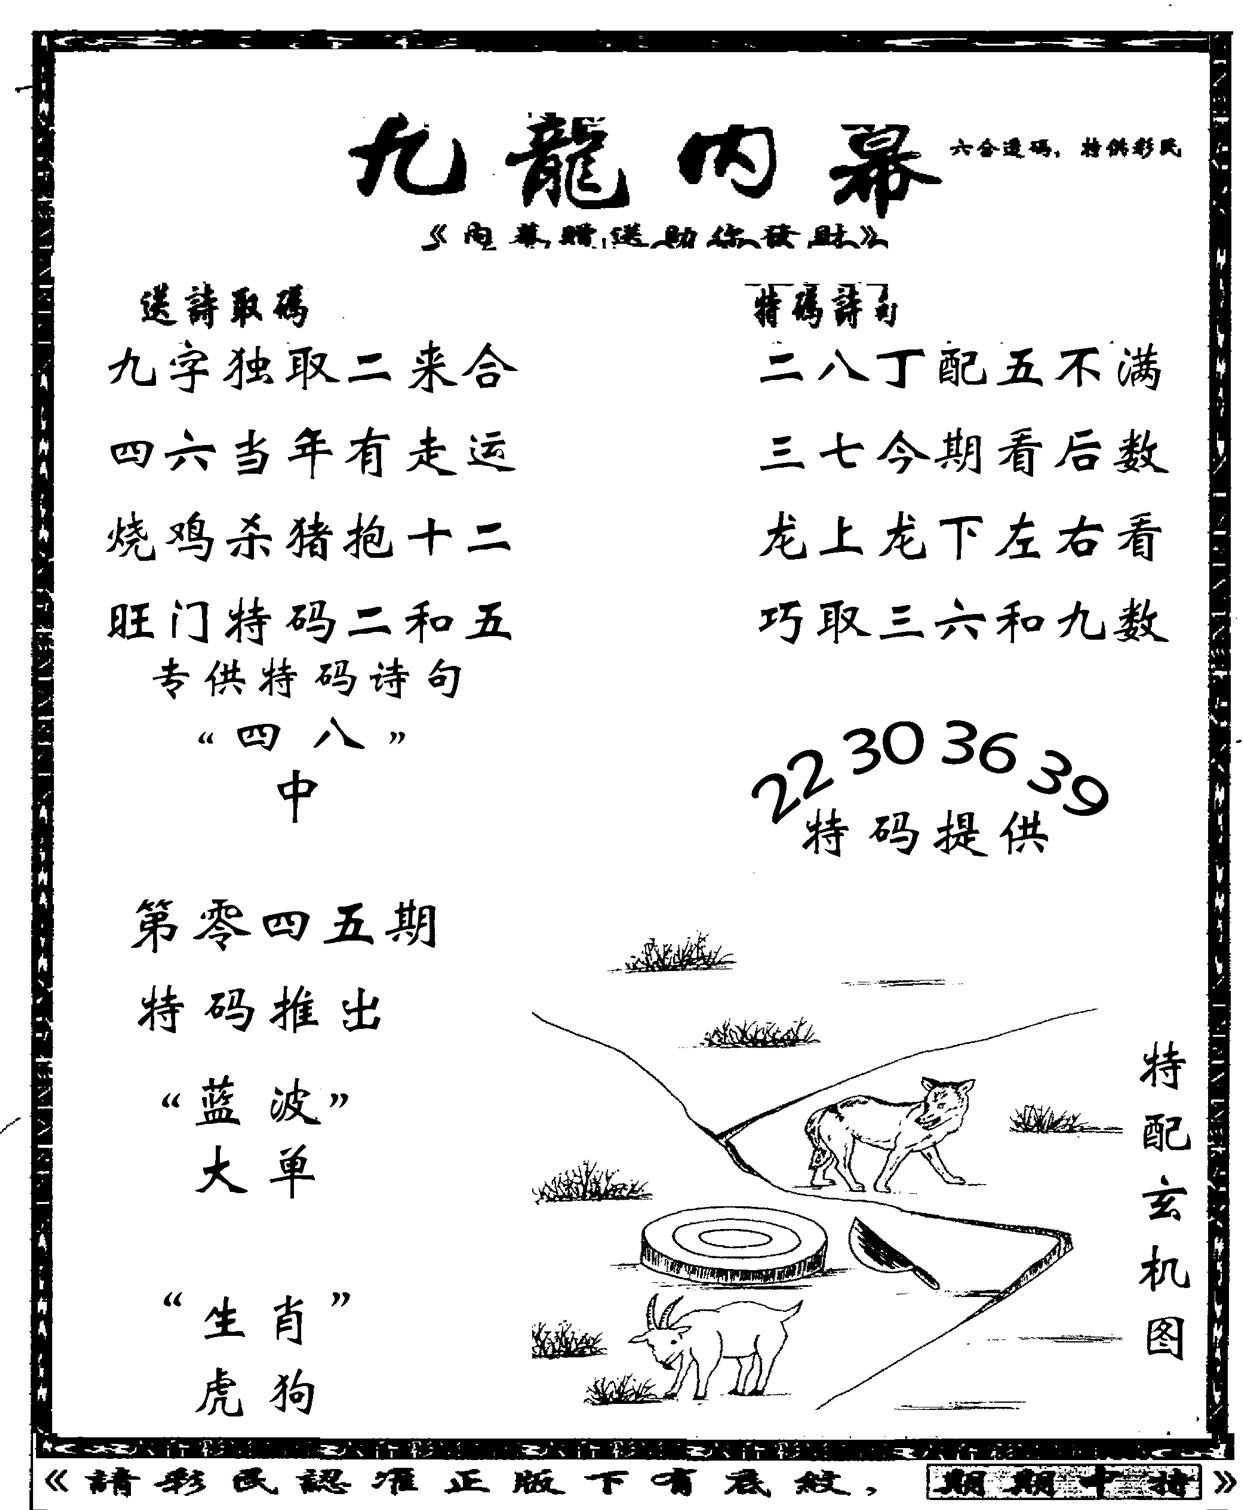 九龍内幕
六合透码，特供彩民
《内幕贈送助你發財》
送詩取碼
九字独取二来合
四六当年有走运
烧鸡杀猪抱十二
旺门特码二和五
专供特码诗句
“四八”
中
特碼詩句
二八丁配五不满
三七今期看后数
龙上龙下左右看
巧取三六和九数
22 30 36 39
特码提供
第零四五期
特码推出
“蓝波”
大单
“生肖”
虎狗
特配玄机图
《請彩民認准正版下有底紋，期期中特》